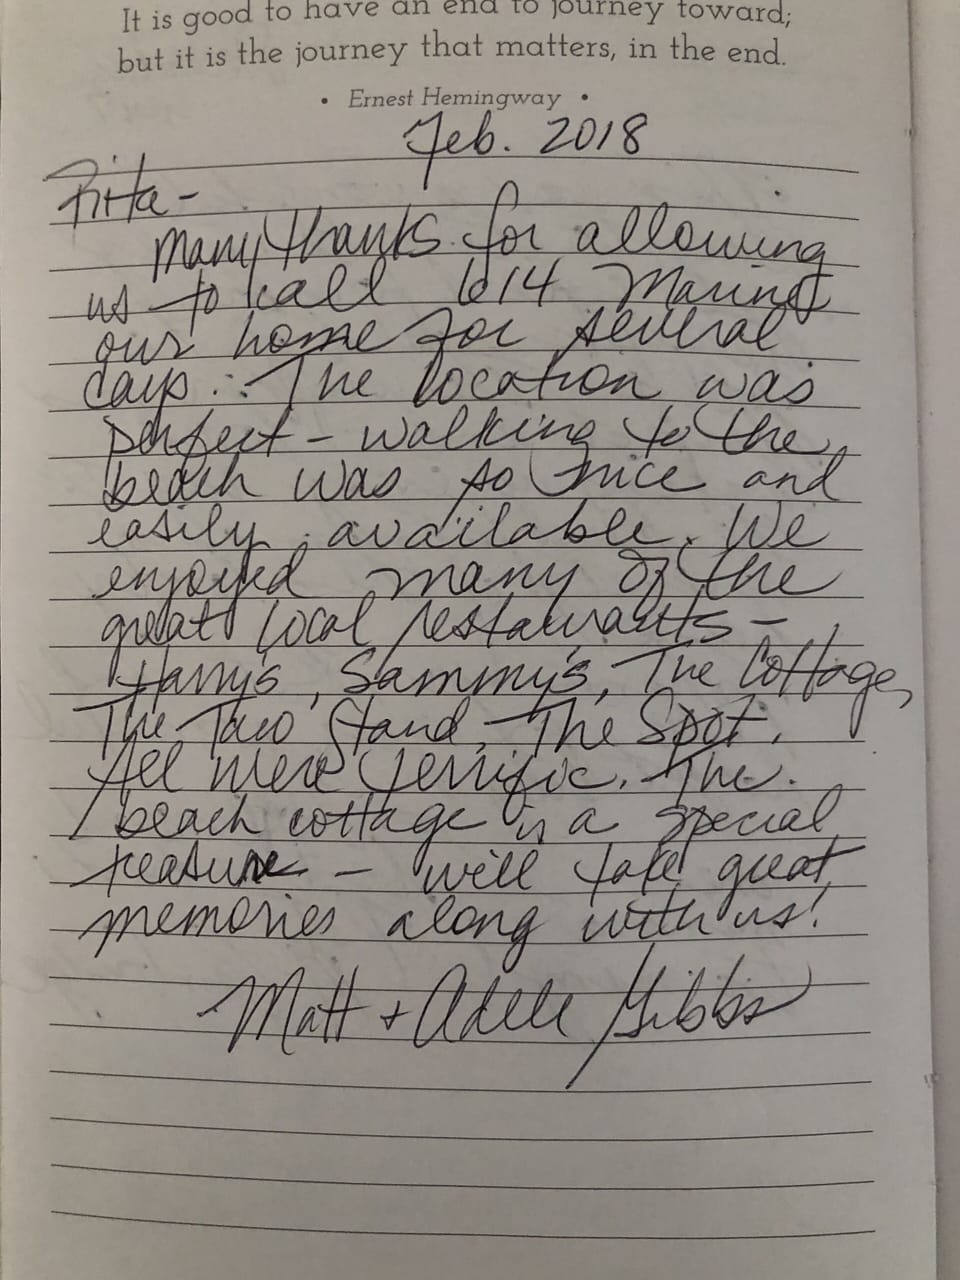 It is good to have an end to journey toward;
but it is the journey that matters, in the end.
• Ernest Hemingway •
Feb. 2018
Rita-
Many thanks for allowing
us to call 614 Marine
our home for several
days. The location was
perfect - walking to the
beach was so nice and
easily available. We
enjoyed many of the
great local restaurants -
Harry's, Sammy's, The Cottage,
The Taco Stand, The Spot.
All were terrific. The
beach cottage is a special
treasure - will take great
memories along with us!
Matt + Adele Gibbs